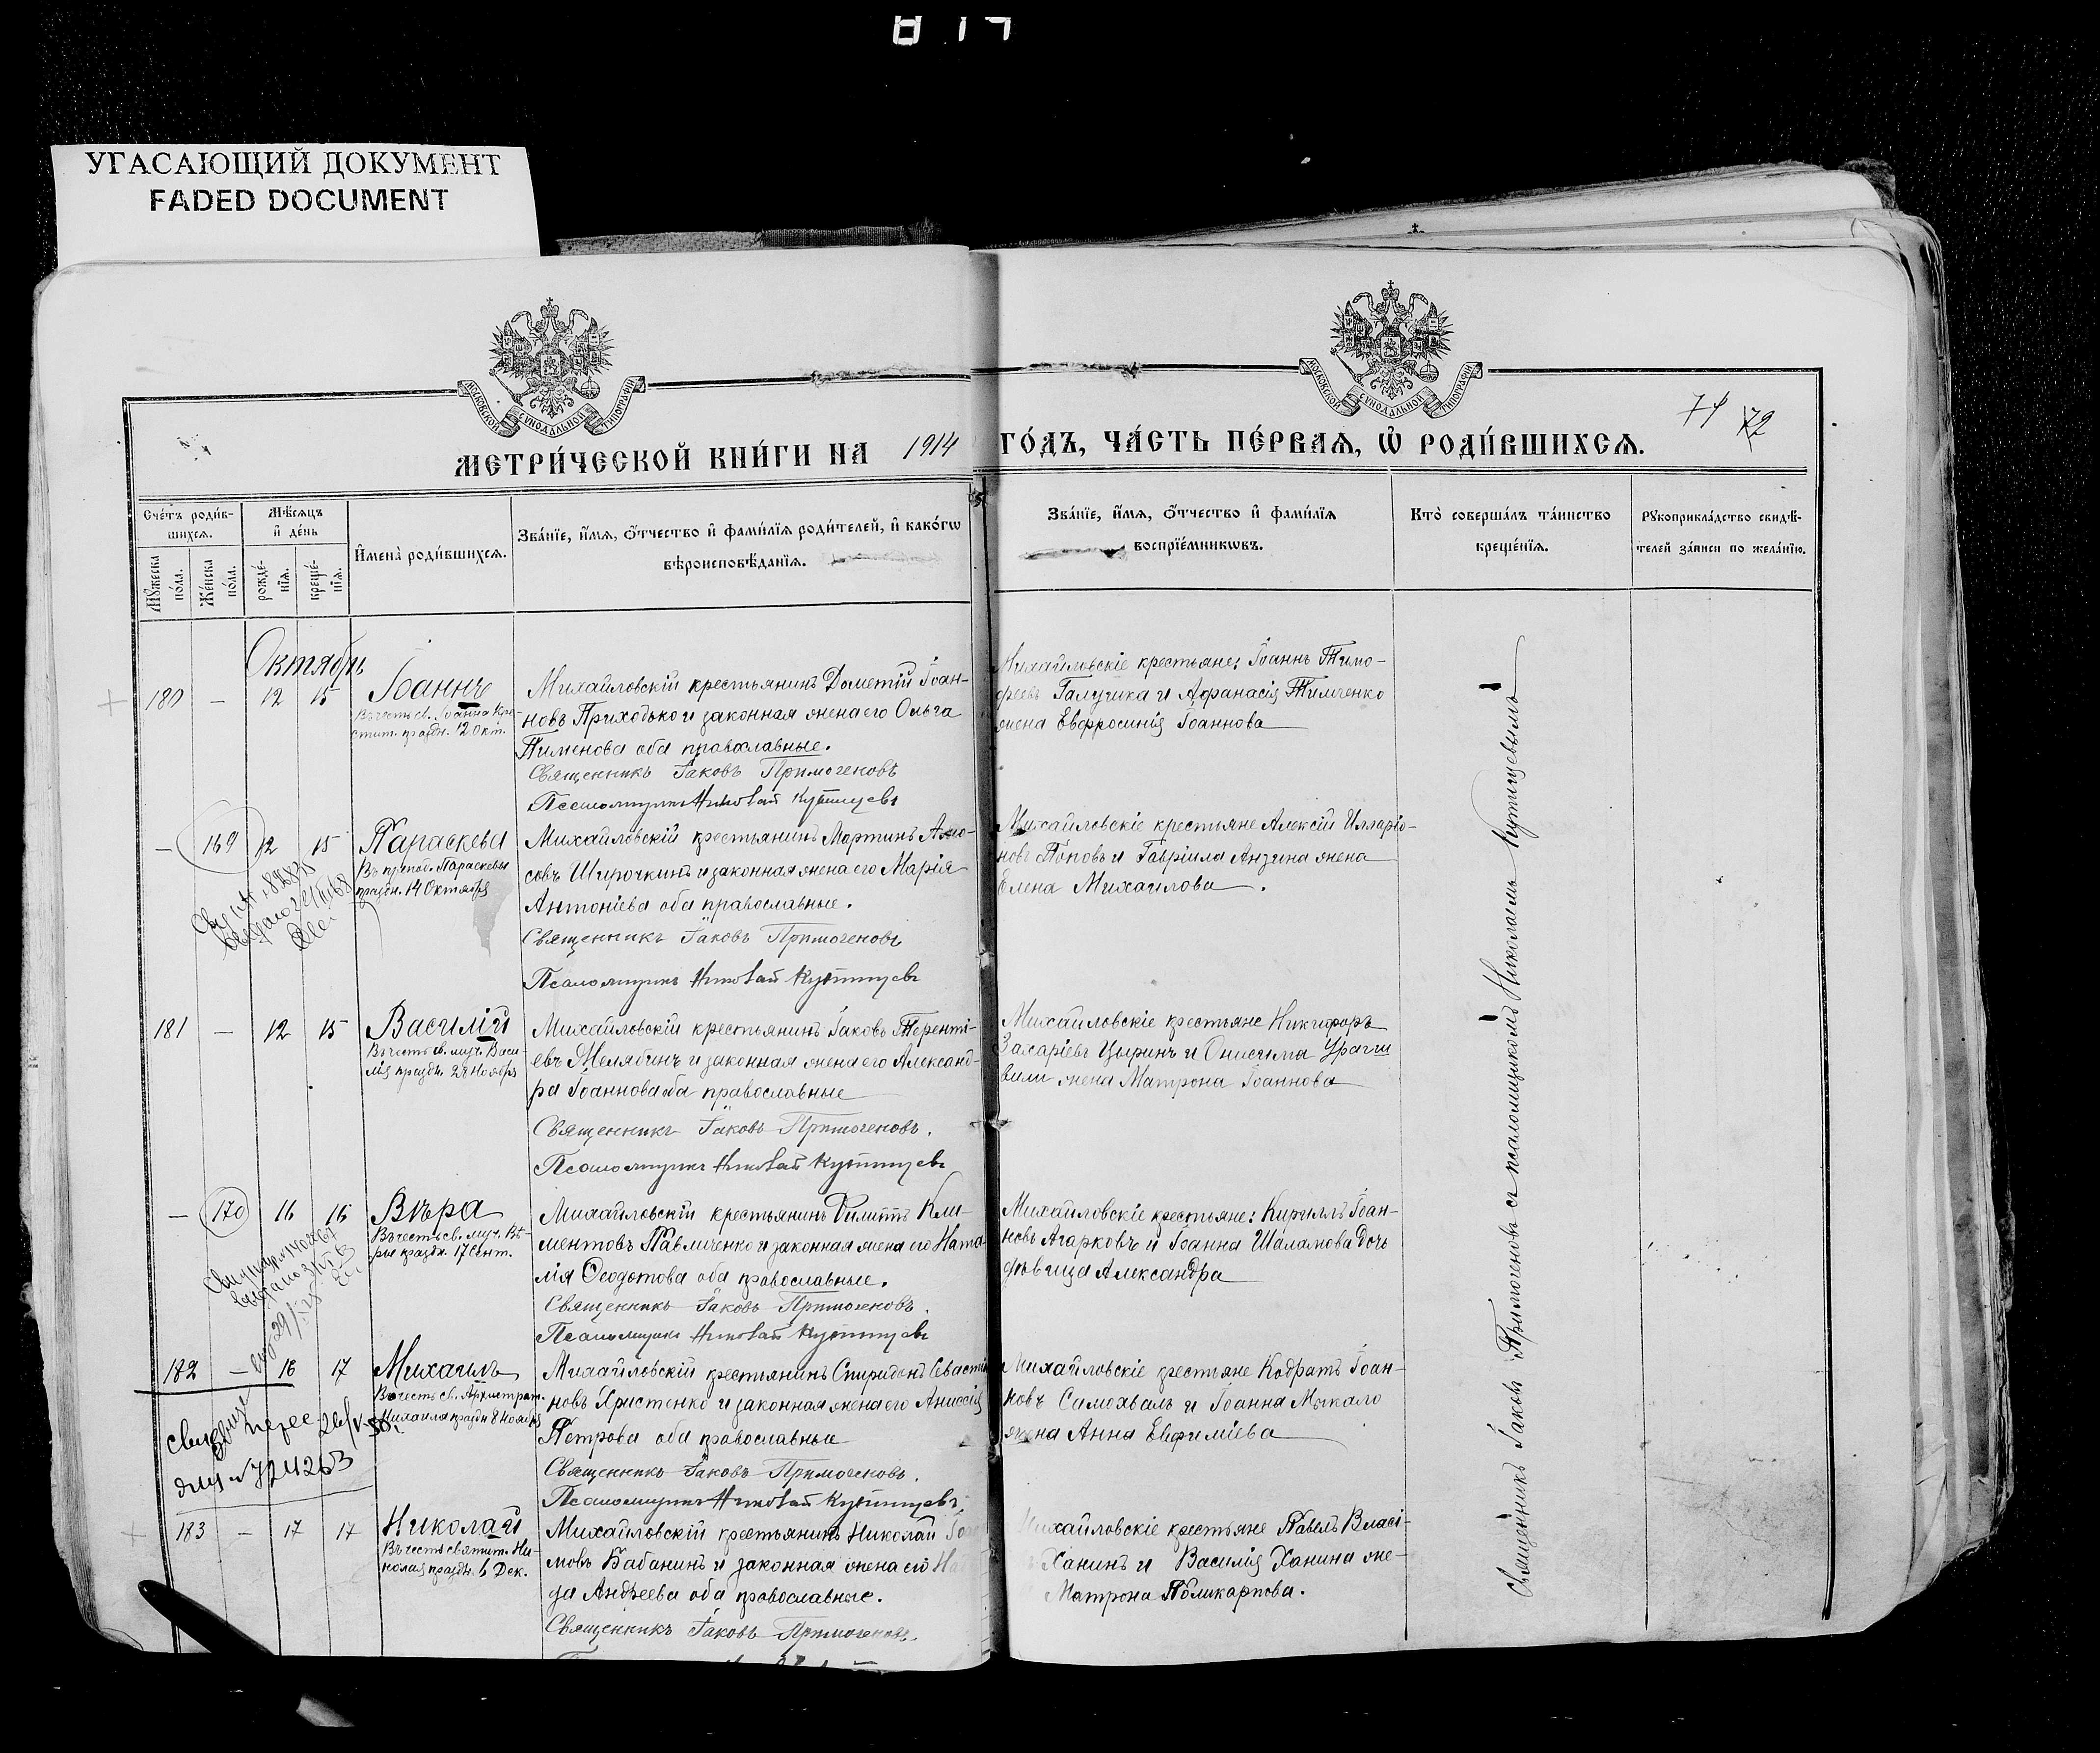 УГАСАЮЩИЙ ДОКУМЕНТ
FADED DOCUMENT
МОСКОВСКОЙ СѴНОДАЛЬНОЙ ТИПОГРАФІИ
МОСКОВСКОЙ СѴНОДАЛЬНОЙ ТИПОГРАФІИ
МЕТРИ́ЧЕСКОЙ КНИ́ГИ НА 1914 ГО́ДЪ, ЧА́СТЬ ПЕ́РВАѦ, Ѽ РОДИ́ВШИХСѦ.
71 72
Сче́тъ роди́в-
шихсѧ.
Мѣ́сѧцъ
и҆ де́нь
Мꙋ́жеска по́ла.
Же́нска по́ла.
рожде́-
нїѧ.
креще́-
нїѧ.
И҆мена̀ роди́вшихсѧ.
Зва́нїе, и҆́мѧ, ѻ҆́тчество и҆ фами́лїѧ роди́телей, и҆ како́гѡ
вѣроисповѣ́данїѧ.
Зва́нїе, и҆́мѧ, ѻ҆́тчество и҆ фами́лїѧ
воспрїе́мникѡвъ.
Кто̀ соверша́лъ та́инство
креще́нїѧ.
Рꙋкоприкла́дство свидѣ́-
телей за́писи по жела́нїю.
Октябрь
180 — 12 15 Іоаннъ
Въ честь св. Іоанна Кре-
стит. праздн. 12 Окт.
Михайловскій крестьянинъ Дометій Іоан-
новъ Приходько и законная жена его Ольга
Пименова оба православные.
Священникъ Іаковъ Примогеновъ
Псаломщикъ Николай Кутищевъ
Михайловскіе крестьяне: Іоаннъ Тимо-
феевъ Галушка и Афанасія Тимченко
жена Евфросинія Іоаннова
— 169 12 15 Параскева
Въ препод. Параскевы
праздн. 14 Октября
Михайловскій крестьянинъ Мартинъ Амо-
совъ Широчкинъ и законная жена его Марія
Антоніева оба православные.
Священникъ Іаковъ Примогеновъ
Псаломщикъ Николай Кутищевъ
Михайловскіе крестьяне Алексій Илларіо-
новъ Поповъ и Гавріила Анзина жена
Елена Михаилова.
181 — 12 15 Василій
Въ честь св. муч. Васи-
лія праздн. 28 Ноября
Михайловскій крестьянинъ Іаковъ Теренті-
евъ Мелябинъ и законная жена его Александ-
ра Іоаннова оба православные
Священникъ Іаковъ Примогеновъ.
Псаломщикъ Николай Кутищевъ
Михайловскіе крестьяне Никифоръ
Захаріевъ Цыринъ и Онисима
вили жена Матрона Іоаннова
— 170 16 16 Вѣра
Въ честь св. муч. Вѣ-
ры праздн. 17 Сент.
Михайловскій крестьянинъ Филиппъ Кли-
ментовъ Павличенко и законная жена его Ната-
лія Ѳеодотова оба православные.
Священникъ Іаковъ Примогеновъ.
Псаломщикъ Николай Кутищевъ
Михайловскіе крестьяне: Кириллъ Іоан-
новъ Агарковъ и Іоанна Шаламова дочь
дѣвица Александра
182 — 16 17 Михаилъ
Въ честь св. Архистрат.
Михаила праздн 8 Ноября
Михайловскій крестьянинъ Спиридонъ Севасті
новъ Христенко и законная жена его Анисія
Петрова оба православные
Священникъ Іаковъ Примогеновъ.
Псаломщикъ Николай Кутищевъ.
Михайловскіе крестьяне Кодратъ Іоан-
новъ Самохвалъ и Іоанна Мыкало
жена Анна Евфиміева
183 — 17 17 Николай
Въ честь святит. Ни-
колая праздн. 6 Дек.
Михайловскій крестьянинъ Николай
мовъ Бабанинъ и законная жена его
да Андреева оба православные.
Священникъ Іаковъ Примогеновъ.
Михайловскіе крестьяне Павелъ Власі-
Ханинъ и Василія Ханина же-
Матрона Поликарпова.
Священникъ Іаковъ Примогеновъ съ псаломщикомъ Николаемъ Кутищевымъ